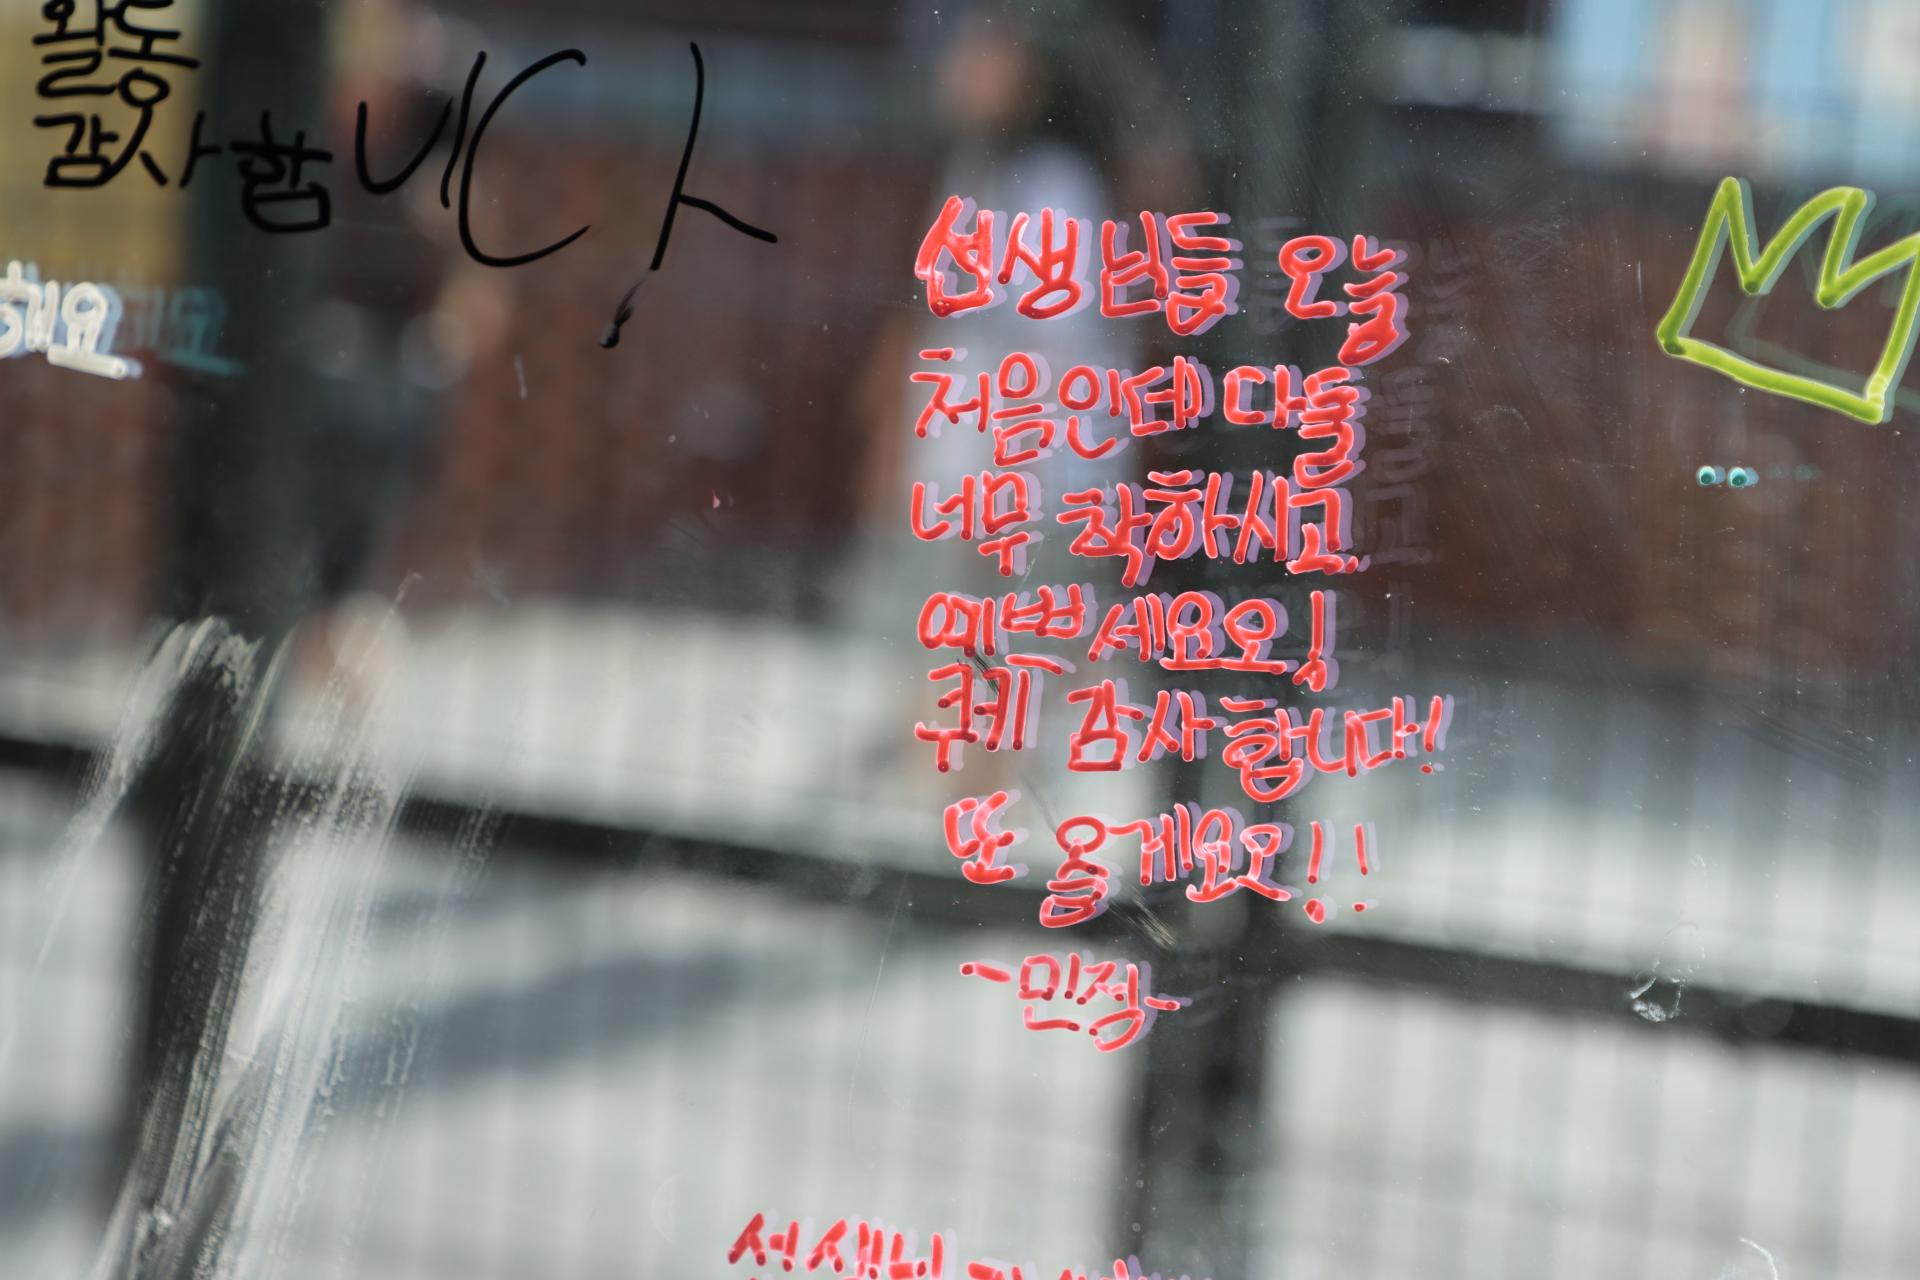 활동
감사합니다
해요
선생님들 오늘
처음인데 다들
너무 착하시고
예쁘세요오!
쿠키 감사합니다!
또 올게요오!!
-민정-
선생님